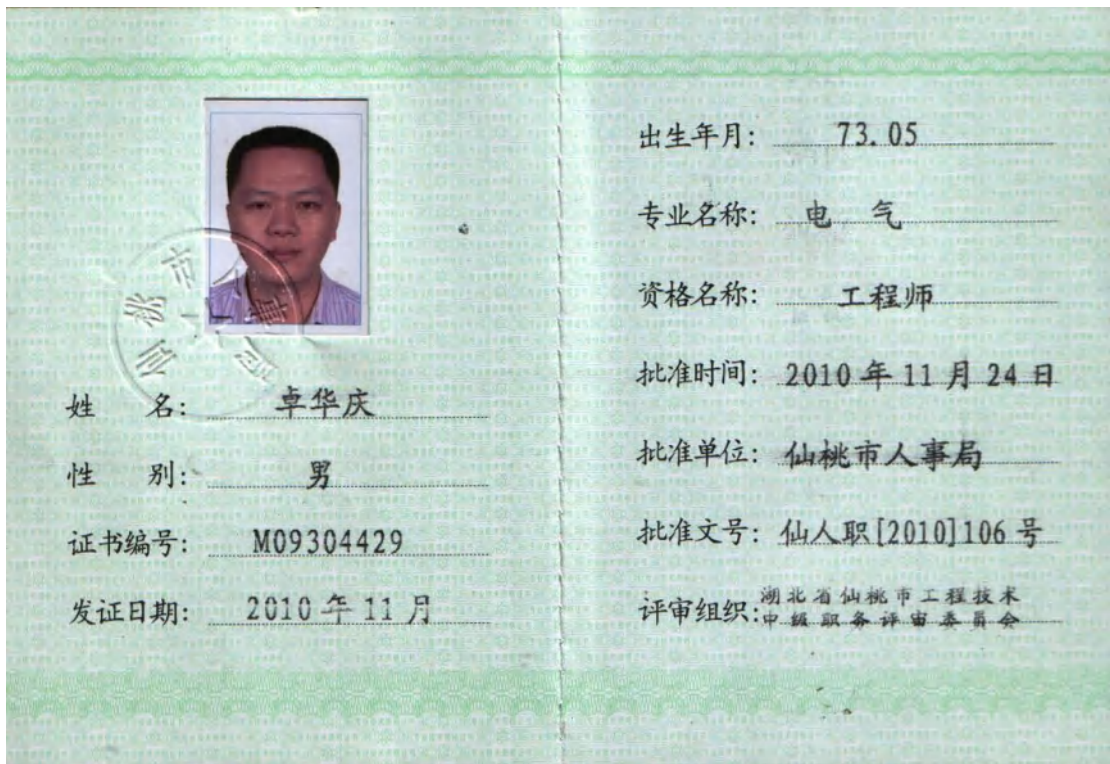 姓 名: 卓华庆
性 别: 男
证书编号: M09304429
发证日期: 2010 年 11 月
出生年月: 73.05
专业名称: 电 气
资格名称: 工程师
批准时间: 2010 年 11 月 24 日
批准单位: 仙桃市人事局
批准文号: 仙人职[2010]106 号
评审组织: 湖北省仙桃市工程技术
中级职务评审委员会